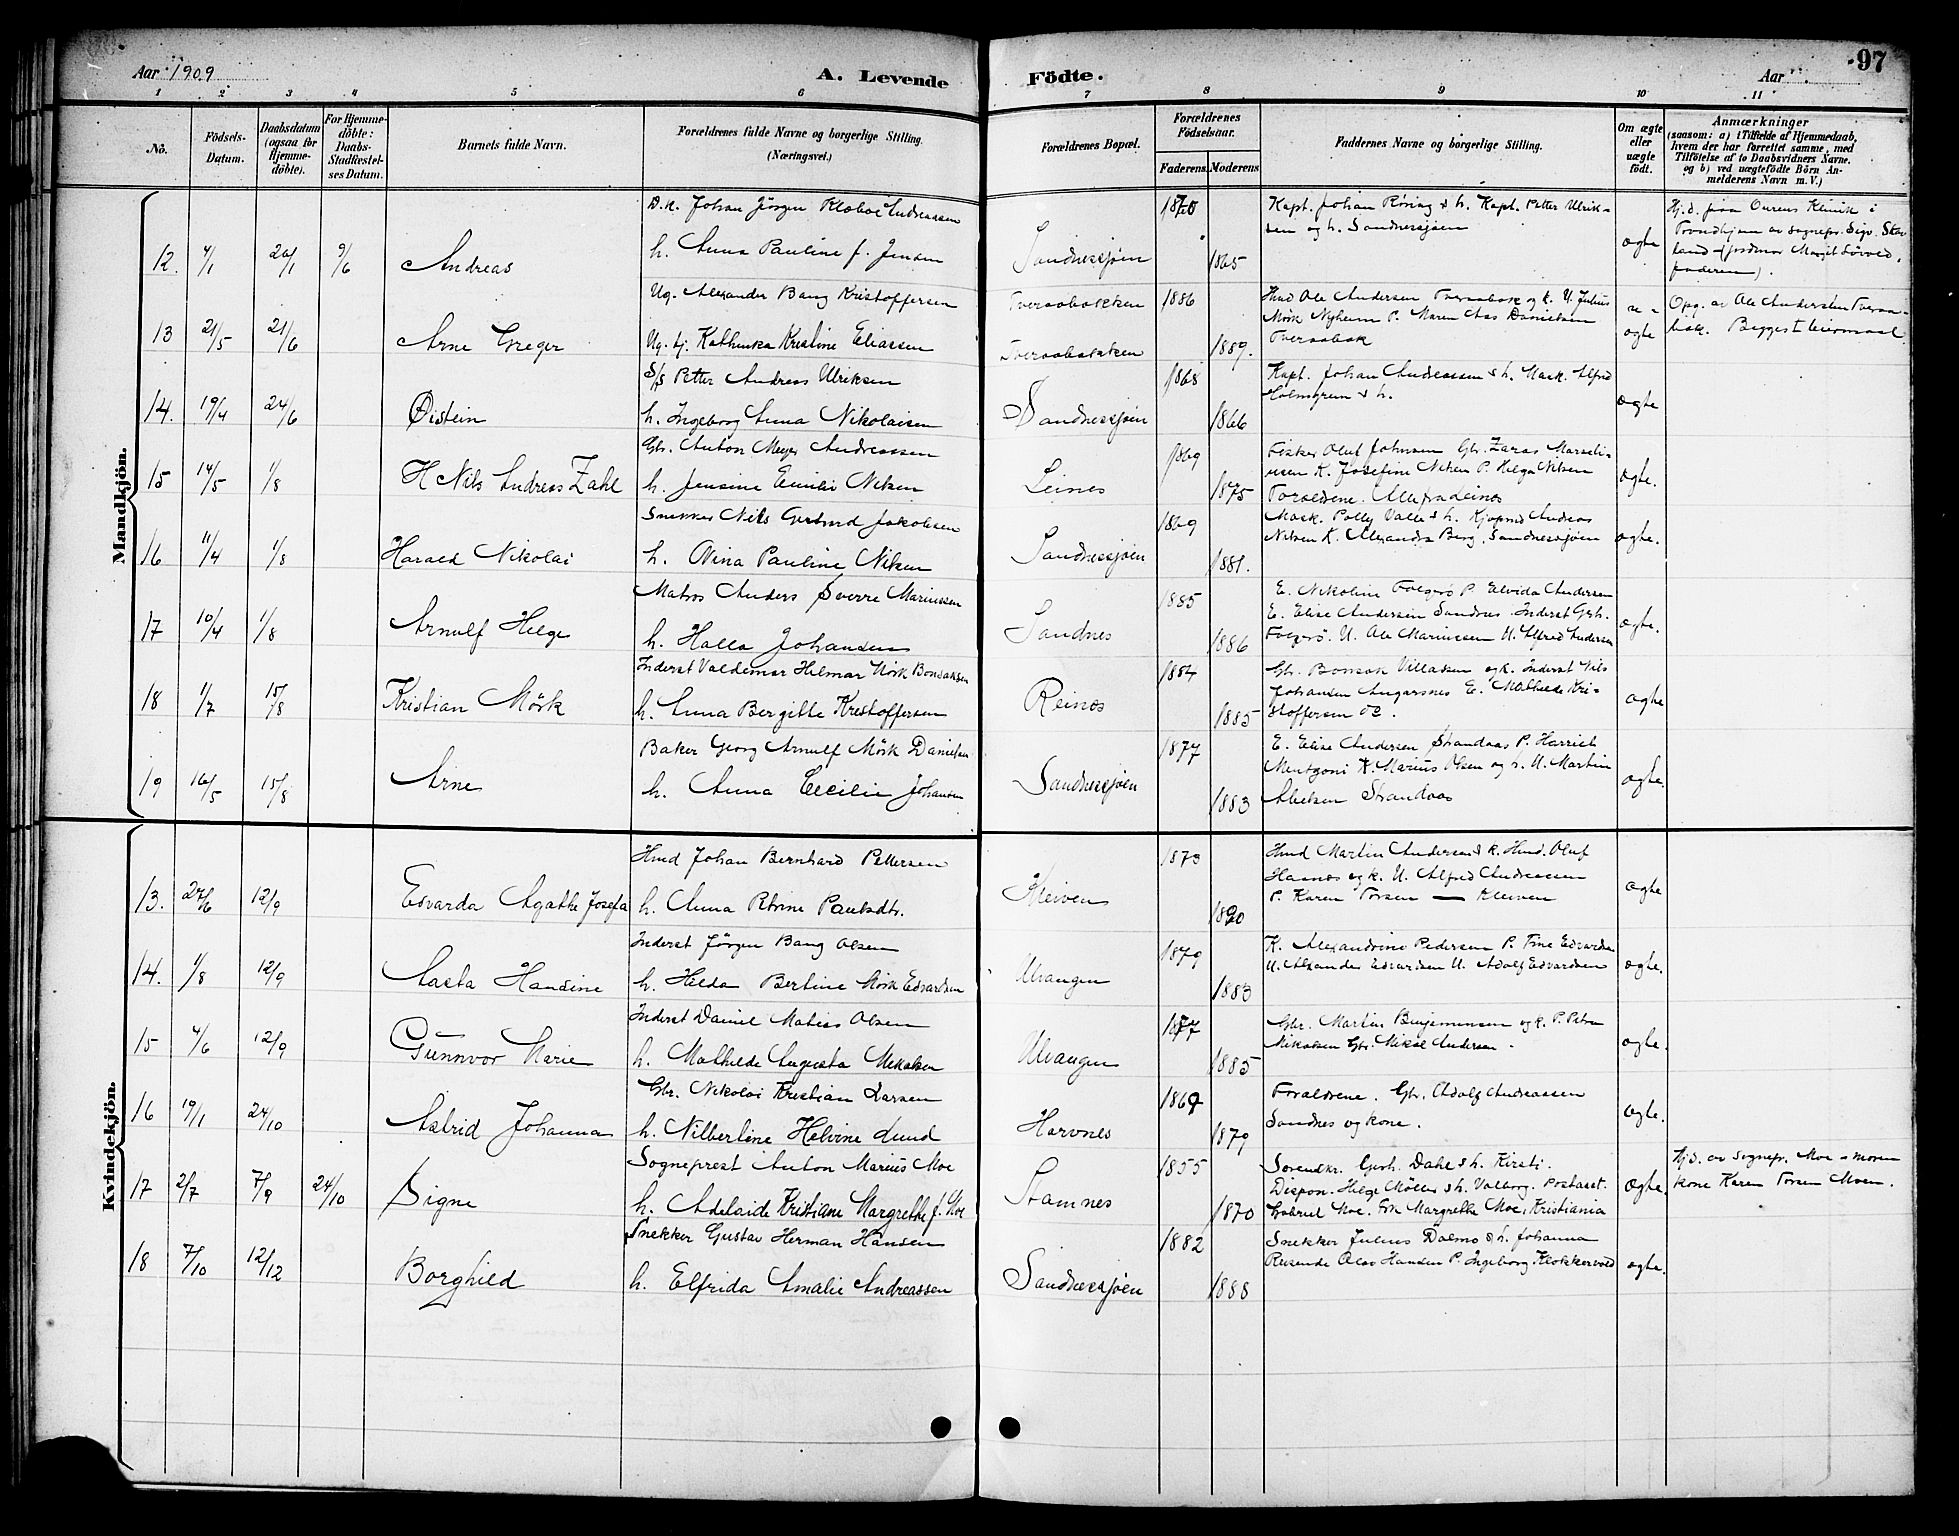 Aar 1909
A. Levende
Födte.
Aar
97
1 2 3 4 5 6 7 8 9 10 11
No.
Födsels-Datum.
Daabsdatum (ogsaa for Hjemme-döbte).
For Hjemme-döbte: Daabs-Stadfæstel-ses Datum.
Barnets fulde Navn.
Forældrenes fulde Navne og borgerlige Stilling. (Næringsvei.)
Forældrenes Bopæl.
Forældrenes Födselsaar.
Faderens. Moderens
Faddernes Navne og borgerlige Stilling.
Om ægte eller uægte födt.
Anmærkninger (saasom: a) i Tilfælde af Hjemmedaab, hvem der har forrettet samme, med Tilföielse af to Daabsvidners Navne, og b) ved uægtefödte Börn An-melderens Navn m. V.)
Mandkjön.
D.k. Johan Jörgen Klæboe Andreassen 1870 Kapt. Johan Röring & h. Kapt. Petter Ulrik- Hj.d. paa Ourens Klinik i
sen og h. Sandnessjøen Trondhjem av sognepr. Sigv. Skav
12. 4/1 20/1 9/6 Andreas h. Anna Pauline f. Jensen Sandnessjøen 1865 ægte land (jordmor Margit Sörved,
faderen).
Ug. Alexander Bang Kristoffersen Tveraabakken 1886 Hmd Ole Andersen Tveraabak og k. U. Julius u- Opg. av Ole Andersten Tveraa-
13 21/5 21/6 Arne Greger Ug. tj. Kathinka Kristine Eliassen Tveraabakken 1889. Mörk Nyheim P. Maren Aas Danielsen ægte bak. Begges 1 leiermaal
Tveraabak
S/s Petter Andreas Ulriksen 1868 Kapt. Johan Andreassen & h. Mask. Alfred
14. 19/4 24/6 Øistein h. Ingeborg Anna Nikolaisen Sandnessjøen 1866 Holmgren & h. ægte
Gbr. Anton Meyer Andreassen 1869 Fisker Oluf Johnsen Gbr. Zaras Marseli-
15 14/5 1/8 H Nils Andreas Zahl h. Jensine Emilie Nilsen Leines 1875 usen K. Josefine Nilsen P. Helga Nilsen ægte.
Forældrene. Alle fra Leines
Snekker Nils Gerhard Jakobsen 1869 Mask. Polly Valle & h. Kjøpmd Andreas
16 11/4 1/8 Harald Nikolai h. Nina Pauline Nilsen Sandnessjøen 1881. Nilsen K. Alexandra Berg, Sandnessjøen ægte.
Matros Anders Sverre Marinssen 1885 E. Nikoline Folgerö P. Elvida Andersen
17 10/4 1/8 Arnulf Helge h. Halla Johansen Sandnes 1886 E. Elise Andersen Sandnes. Inderst Gerh. ægte.
Folgerö. U. Ole Marinssen U. Alfred Andersen
Inderst Valdemar Hilmar Mörk Bonsaksen 1884 Gbr. Bonsak Villadsen og k. Inderst Nils
18 1/7 15/8 Kristian Mörk h. Anna Bergitte Kristoffersen Reines 1885 Johansen Angarsnes E. Mathilde Kri- ægte
stoffersen
Baker Georg Arnulf Mörk Danielsen 1877 E. Elise Andersen Strandaas P. Harriet
19 16/5 15/8 Arne h. Anna Cecilie Johansen Sandnessjøen 1883 Mentzoni K. Marius Olsen og h. U. Martin ægte.
Strandaas
Kvindekjön.
Hmd Johan Bernhard Pettersen 1873 Hmd Martin Andersen & k. Hmd. Oluf
13. 27/6 12/9 Edvarda Agathe Josefa h. Anna Petrine Paulsdtr. Kleiven 1880 Hannes og k. U. Alfred Andreassen ægte
P. Karen Torsen — Kleiven
Inderst Jörgen Bang Olsen 1879 K. Alexandrine Pedersen P. Tine Edvardsen
14. 1/8 12/9 Aasta Handine h. Hilda Bertine Mörk Edvardsen Ulvangen 1883 U. Alxander Edvardsen U. Adolf Edvardsen ægte.
Inderst Daniel Matias Olsen 1877 Gbr. Martin Benjaminsen og k. P. Petra
15 4/6 12/9 Gunnvor Marie h. Mathilde Augusta Mikalsen Ulvangen 1885 Mikalsen Gbr. Mikal Andersen. ægte.
Gbr. Nikolai Kristian Larsen 1869 Forældrene. Gbr. Adolf Andreassen
16 19/1 24/10 Astrid Johanna h. Nilbertine Helvine Lund Havnes 1879 Sandnes og kone. ægte.
Sogneprest Anton Marius Moe 1855 Sorenskr. Gerh. Dahl & h. Kirsti. Hj.d. av sognepr. Moe – moren
17 2/7 7/9 24/10 Signe h. Adelaide Kristiane Margrethe f. Moe Stamnes 1870 Dispon. Helge Möller & h. Valborg. Postasst. ægte. kone Karen Torsen Moen.
Gabriel Moe. Frk Margrethe Moe, Kristiania
Snekker Gustav Herman Hansen 1882 Snekker Julius Dalmo & h. Johanna
18 7/10 12/12 Borghild h. Elfrida Amalie Andreassen Sandnessjøen 1888 Reisende Olav Hansen P. Ingeborg Klokkervold ægte.